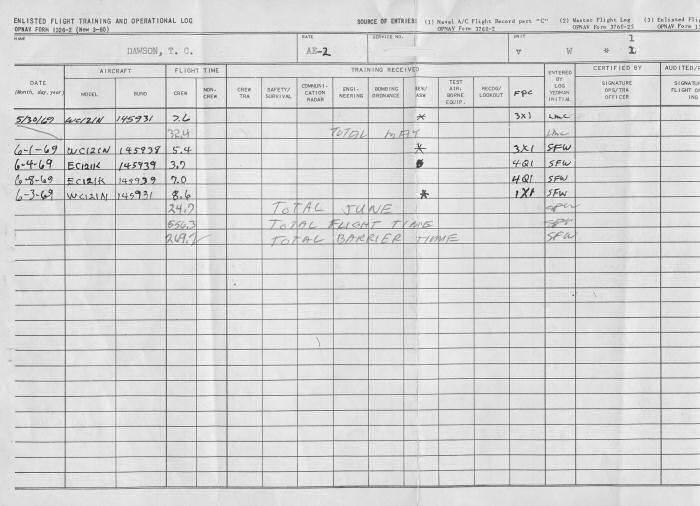 ENLISTED FLIGHT TRAINING AND OPERATIONAL LOG
OPNAV Form 1326-2 (New 3-60)
SOURCE OF ENTRIES: (1) Naval A/C Flight Record part "C" (2) Master Flight Log (3) Enlisted
OPNAV Form 3760-2 OPNAV Form 3760-25 OPNAV Form
NAME RATE SERVICE NO. UNIT 1
DAWSON, T. C. AE-2 V W * 1
DATE (Month, day, year) AIRCRAFT FLIGHT TIME TRAINING RECEIVED ENTERED BY LOG YEOMAN INITIAL CERTIFIED BY
MODEL BUNO CREW NON-CREW CREW TRA SAFETY/SURVIVAL COMMUNI-CATION RADAR ENGI-NEERING BOMBING ORDNANCE TEST AIR-BORNE EQUIP. RECOG/LOOKOUT FPC SIGNATURE OPS/TRA OFFICER
5/30/69 WC121N 145931 7.6 * 3X1 LMC
32.4 TOTAL MAY LMC
6-1-69 WC121N 145938 5.4 * 3X1 SFW
6-4-69 EC121K 145939 3.7 4Q1 SFW
6-8-69 EC121K 145939 7.0 4Q1 SFW
6-3-69 WC121N 145931 8.6 * 1X1 SFW
24.7 TOTAL JUNE SFW
556.3 TOTAL FLIGHT TIME SFW
TOTAL BARRIER TIME SFW